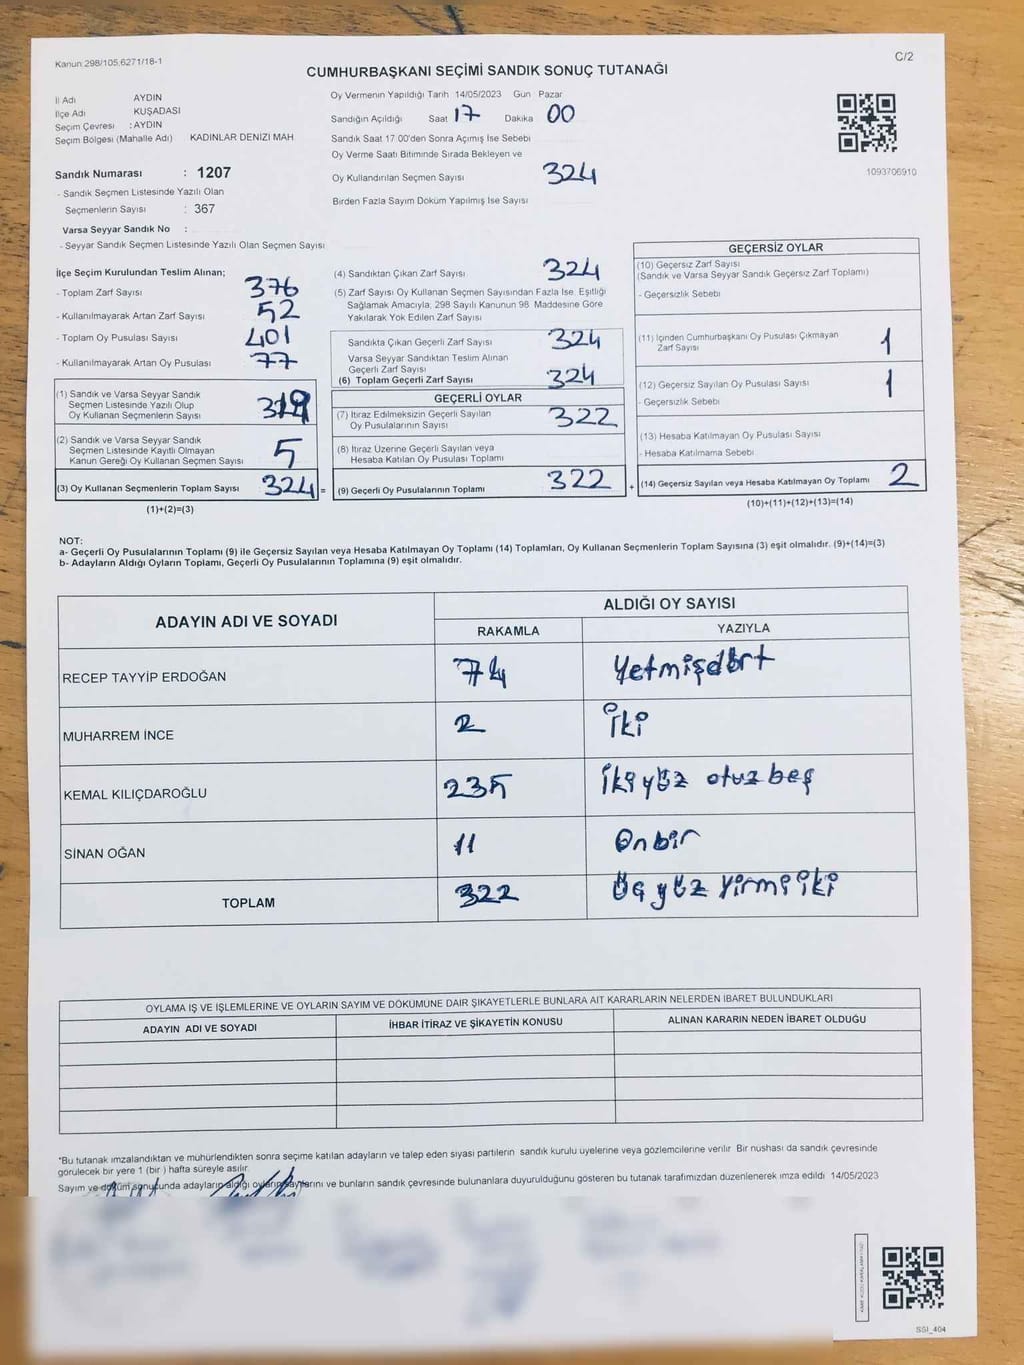 Kanun:298/105,6271/18-1
C/2
CUMHURBAŞKANI SEÇİMİ SANDIK SONUÇ TUTANAĞI
İl Adı AYDIN
İlçe Adı KUŞADASI
Seçim Çevresi : AYDIN
Seçim Bölgesi (Mahalle Adı) KADINLAR DENİZİ MAH.
Sandık Numarası : 1207
- Sandık Seçmen Listesinde Yazılı Olan
Seçmenlerin Sayısı : 367
Varsa Seyyar Sandık No :
- Seyyar Sandık Seçmen Listesinde Yazılı Olan Seçmen Sayısı
Oy Vermenin Yapıldığı Tarih 14/05/2023 Gün Pazar
Sandığın Açıldığı Saat 17 Dakika 00
Sandık Saat 17:00'den Sonra Açımış İse Sebebi
Oy Verme Saati Bitiminde Sırada Bekleyen ve
Oy Kullandırılan Seçmen Sayısı 324
Birden Fazla Sayım Döküm Yapılmış İse Sayısı
1093706910
İlçe Seçim Kurulundan Teslim Alınan;
- Toplam Zarf Sayısı 376
- Kullanılmayarak Artan Zarf Sayısı 52
- Toplam Oy Pusulası Sayısı 401
- Kullanılmayarak Artan Oy Pusulası 77
(1) Sandık ve Varsa Seyyar Sandık
Seçmen Listesinde Yazılı Olup
Oy Kullanan Seçmenlerin Sayısı 319
(2) Sandık ve Varsa Seyyar Sandık
Seçmen Listesinde Kayıtlı Olmayan
Kanun Gereği Oy Kullanan Seçmen Sayısı 5
(3) Oy Kullanan Seçmenlerin Toplam Sayısı 324 =
(1)+(2)=(3)
(4) Sandıktan Çıkan Zarf Sayısı 324
(5) Zarf Sayısı Oy Kullanan Seçmen Sayısından Fazla İse, Eşitliği
Sağlamak Amacıyla; 298 Sayılı Kanunun 98. Maddesine Göre
Yakılarak Yok Edilen Zarf Sayısı
Sandıkta Çıkan Geçerli Zarf Sayısı 324
Varsa Seyyar Sandıktan Teslim Alınan
Geçerli Zarf Sayısı
(6) Toplam Geçerli Zarf Sayısı 324
GEÇERLİ OYLAR
(7) İtiraz Edilmeksizin Geçerli Sayılan
Oy Pusulalarının Sayısı 322
(8) İtiraz Üzerine Geçerli Sayılan veya
Hesaba Katılan Oy Pusulası Toplamı
(9) Geçerli Oy Pusulalarının Toplamı 322 +
GEÇERSİZ OYLAR
(10) Geçersiz Zarf Sayısı
(Sandık ve Varsa Seyyar Sandık Geçersiz Zarf Toplamı)
- Geçersizlik Sebebi
(11) İçinden Cumhurbaşkanı Oy Pusulası Çıkmayan
Zarf Sayısı 1
(12) Geçersiz Sayılan Oy Pusulası Sayısı 1
- Geçersizlik Sebebi
(13) Hesaba Katılmayan Oy Pusulası Sayısı
- Hesaba Katılmama Sebebi
(14) Geçersiz Sayılan veya Hesaba Katılmayan Oy Toplamı 2
(10)+(11)+(12)+(13)=(14)
NOT:
a- Geçerli Oy Pusulalarının Toplamı (9) ile Geçersiz Sayılan veya Hesaba Katılmayan Oy Toplamı (14) Toplamları, Oy Kullanan Seçmenlerin Toplam Sayısına (3) eşit olmalıdır. (9)+(14)=(3)
b- Adayların Aldığı Oyların Toplamı, Geçerli Oy Pusulalarının Toplamına (9) eşit olmalıdır.
ADAYIN ADI VE SOYADI ALDIĞI OY SAYISI
RAKAMLA YAZIYLA
RECEP TAYYİP ERDOĞAN 74 Yetmişdört
MUHARREM İNCE 2 İki
KEMAL KILIÇDAROĞLU 235 İkiyüz otuzbeş
SİNAN OĞAN 11 Onbir
TOPLAM 322 Üçyüz Yirmiiki
OYLAMA İŞ VE İŞLEMLERİNE VE OYLARIN SAYIM VE DÖKÜMÜNE DAİR ŞİKAYETLERLE BUNLARA AİT KARARLARIN NELERDEN İBARET BULUNDUKLARI
ADAYIN ADI VE SOYADI İHBAR İTİRAZ VE ŞİKAYETİN KONUSU ALINAN KARARIN NEDEN İBARET OLDUĞU
*Bu tutanak imzalandıktan ve mühürlendikten sonra seçime katılan adayların ve talep eden siyasi partilerin sandık kurulu üyelerine veya gözlemcilerine verilir. Bir nüshası da sandık çevresinde
görülecek bir yere 1 (bir ) hafta süreyle asılır.
Sayım ve döküm sonucunda adayların aldığı oyların sayılarını ve bunların sandık çevresinde bulunanlara duyurulduğunu gösteren bu tutanak tarafımızdan düzenlenerek imza edildi. 14/05/2023
SSI_404